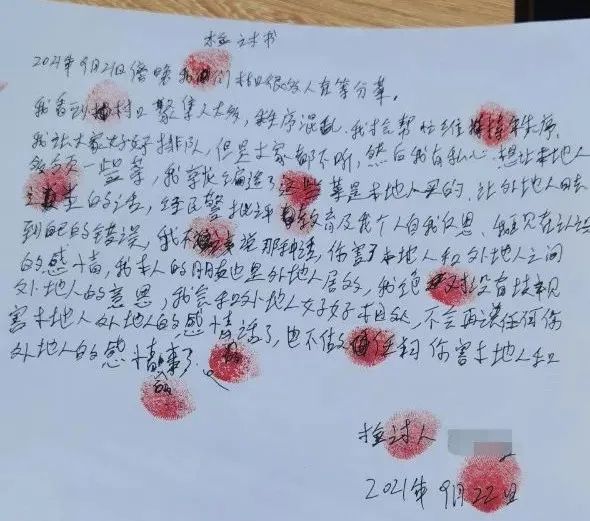 检讨书
2021年9月21日傍晚我们村口很多人在等分菜。
我看到村口聚集人太多，秩序混乱，我挂帮忙维持秩序
我让大家好好排队，但是大家都不听，然后我有私心，想让本地人
多一些菜，我就编造了这些菜是本地人买的，让外地人回去
的话，经民警批评教育及我个人自我反思，我现在认识
到自己的错误，我不该说那种话，伤害了本地人和外地人之间
的感情，我本人的朋友也是外地人居多，我绝对没有歧视
外地人的意思，我会和外地人好好相处，不会再说任何伤
害本地人外地人的感情话了，也不做任何伤害本地人和
外地人的感情事了。
检讨人
2021年9月22日